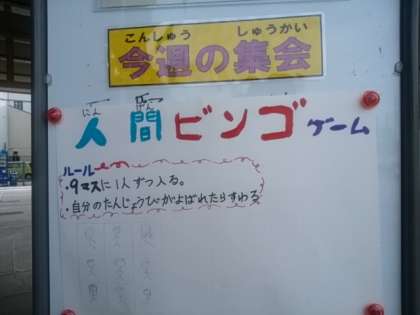 こんしゅう しゅうかい
今週の集会
にん げん
人間ビンゴゲーム
ルール
・9マスに1人ずつ入る。
・自分のたんじょうびがよばれたらすわる